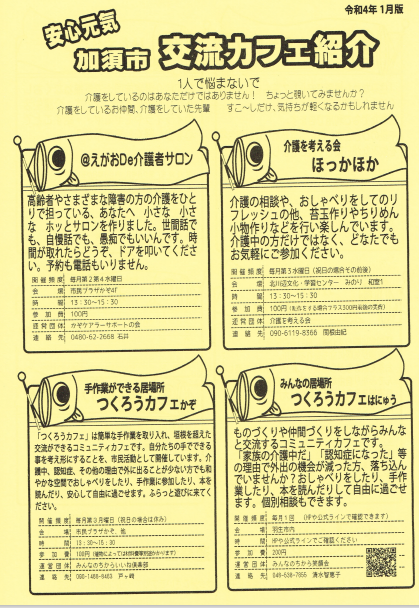 令和4年 1月版
安心元気
加須市 交流カフェ紹介
1人で悩まないで
介護をしているのはあなただけではありません！ ちょっと覗いてみませんか？
介護をしているお仲間、介護をしていた先輩 すこ～しだけ、気持ちが軽くなるかもしれません
@えがおDe介護者サロン
高齢者やさまざまな障害の方の介護をひと
りで担っている、あなたへ 小さな 小さ
な ホッとサロンを作りました。世間話で
も、自慢話でも、愚痴でもいいんです。時
間が取れたらどうぞ、ドアを叩いてくださ
い。予約も電話もいりません。
開催頻度 毎月第2第4水曜日
会場 市民プラザかぞ4F
時間 13：30～15：30
参加費 100円
運営団体 かぞケアラーサポートの会
連絡先 0480-62-2668 石井
介護を考える会
ほっかほか
介護の相談や、おしゃべりをしてのリ
フレッシュの他、苔玉作りやちりめん
小物作りなどを行い楽しんでいます。
介護中の方だけではなく、どなたでも
お気軽にご参加ください。
開催頻度 毎月第3水曜日（祝日の場合その前後）
会場 北川辺文化・学習センター みのり 和室1
時間 13：30～15：30
参加費 100円（制作をする場合プラス300円程度の実費）
運営団体 介護を考える会
連絡先 090-6119-8366 間根由紀
手作業ができる居場所
つくろうカフェかぞ
「つくろうカフェ」は簡単な手作業を取り入れ、垣根を超えた
交流ができるコミュニティカフェです。自分たちの手でできる
事を考え形にすることを、市民活動として開催しています。介
護中、認知症、その他の理由で外に出ることが少ない方でも和
やかな空間でおしゃべりをしたり、手作業に参加したり、本を
読んだり、安心して自由に過ごせます。ふらっと遊びに来てく
ださい。
開催頻度 毎月第3月曜日（祝日の場合は休み）
会場 市民プラザかぞ、他
時間 13：30～15：30
参加費 100円（催物によっては材料費等別途かかります）
運営団体 みんなのちからいいね倶楽部
連絡先 090-1468-8463 戸ヶ崎
みんなの居場所
つくろうカフェはにゅう
ものづくりや仲間づくりをしながらみんな
と交流するコミュニティカフェです。
「家族の介護中だ」「認知症になった」等
の理由で外出の機会が減った方、落ち込ん
でいませんか？おしゃべりをしたり、手作
業したり、本を読んだりして自由に過ごせ
ます。個別相談もできます。
開催頻度 毎月1回 （HPや公式ラインで確認できます）
会場 羽生市内
時間 HPや公式ラインでご確認ください
参加費 200円
運営団体 みんなのちから笑顔会
連絡先 049-638-7855 清水智恵子